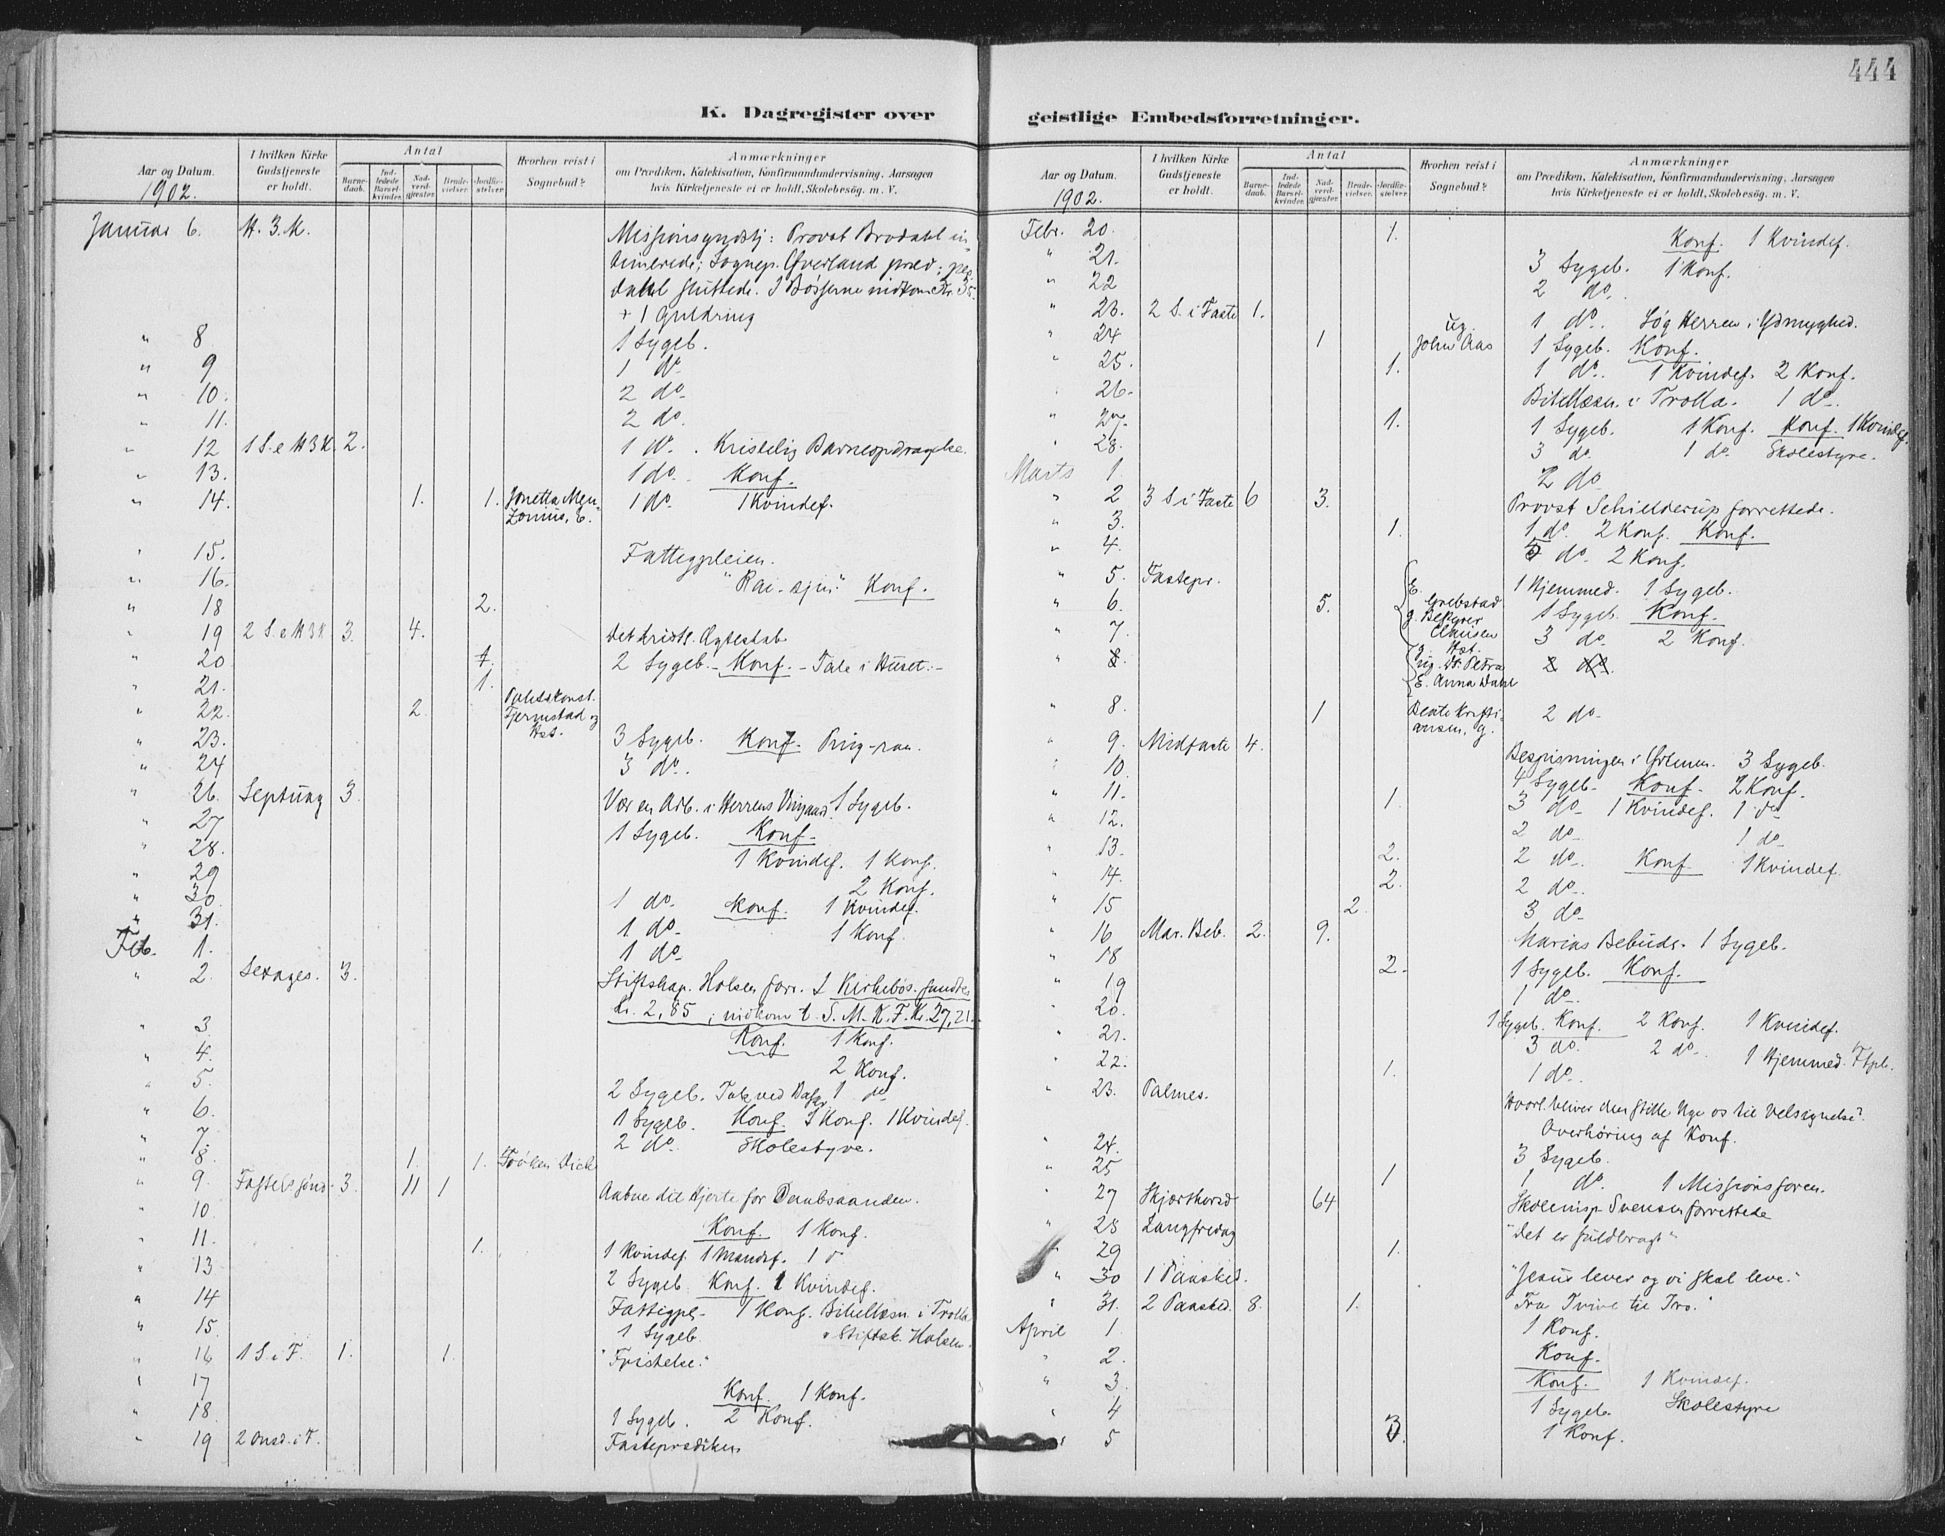 444
K. Dagregister over
Aar og Datum.
1902.
I hvilken Kirke Gudstjeneste er holdt.
Antal
Barnedaab.
Indledede Barselkvinder.
Nadverdgjæster.
Brudevielser.
Jordfæstelser
Hvorhen reist i Sognebud?
Anmærkninger
om Prædiken, Katekisation, Konfirmandundervisning, Aarsagen
hvis Kirketjeneste ei er holdt, Skolebesøg. m. V.
Januar 6. H. 3. K. Missionsgudstj: Provst Brodahl in-
timerede; Sognepr. Øverland præd.;
dahl sluttede. I Bøsserne indkom Kr. 35.
+ 1 Guldring
" 8 1 Sygeb.
" 9 1 do
" 10. 2 do
" 11. 2 do
" 12 1 S. e H 3 K. 2. 1 do. Kristelig Barneopdragelse.
" 13. 1 do. Konf.
" 14. 1. 1. Jonetta Men- 1 do. 1 Kvindef.
zonius, E.
" 15. Fattigpleien.
" 16. Konf.
" 18 2.
" 19 2 S. e H 3 K 3. 4. Det kristl. Ægteskab.
" 20 1. 2 Sygeb. - Konf. - Tale i Huset. -
" 21. 1.
" 22. 2. Fjermstad og
Hst.
" 23. 3 Sygeb. Konf.
" 24 3 do.
" 26. Septuag 3. Vær en Arb. i Herrens Vingaard. 1 Sygeb.
" 27 1 Sygeb. Konf.
" 28. 1 Kvindef. 1 Konf.
" 29 2 Konf.
" 30 1 do. Konf. 1 Kvindef.
" 31. 1 do. 1 Konf.
Feb. 1. 1 do
" 2. Sexages. 3. Stiftskap. Holsen forr. I Kirkebøs. fandtes
Kr. 2,85; indkom t. S. M. K. F. Kr. 27,21.
" 3 Konf. 1 Konf.
" 4. 2 Konf.
" 5. 2 Sygeb. Tale ved Daab 1 do
" 6. 1 Sygeb. Konf. 1 Konf. 1 Kvindef.
" 7. 2 do. Skolestyre.
" 8. 1. 1. Frøken Dick
" 9. Fastelssønd. 3. 11 1 Aabne dit Hjerte for Daabsaanden.
" 10. Konf. 1 Konf.
" 11. 1. 1 Kvindef. 1 Mandsf. 1 d
" 13 2 Sygeb. Konf. 1 Kvindef.
" 14 Fattigpl. - 1 Konf. Bibellæsn. i Trolla
" 15. 1 Sygeb. v. Stiftsk. Holsen.
" 16 1 S. i F. 1. 1. "Fristelse."
" 17 Konf. 1 Konf.
" 18. 1 Sygeb. 2 Konf.
" 19 2 Onsd. i F. Fasteprædiken
geistlige Embedsforretninger.
Aar og Datum.
1902.
I hvilken Kirke Gudstjeneste er holdt.
Antal
Barnedaab.
Indledede Barselkvinder.
Nadverdgjæster.
Brudevielser.
Jordfæstelser.
Hvorhen reist i Sognebud?
Anmærkninger
om Prædiken, Katekisation, Konfirmandundervisning, Aarsagen
hvis Kirketjeneste ei er holdt, Skolebesøg. m. V.
Febr. 20. 1. Konf. 1 Kvindef.
" 21. 3 Sygeb. 1 Konf.
" 22 2 do.
" 23. 2 S. i Faste 1. 1 do. Søg Herren i Ydmyghed.
" 24 1 ug. John Aas 1 Sygeb. Konf.
" 25. 1. 1 do. 1 Kvindef. 2 Konf.
" 26. Bibellæsn. i Trolla. 1 do.
" 27. 1. 1 Sygeb. 1 Konf. Konf. 1 Kvindef.
" 28. 3 do. 1 do. Skolestyre.
Marts 1. 2 do
" 2 3 S i Faste 6 3. Provst Schielderup forrettede.
" 3. 1. 1 do. 2 Konf. Konf.
" 4. 5 do. 2 Konf.
" 5. Fastepr. 1 Hjemmed. 1 Sygeb.
" 6. 5. E. Grebstad 1 Sygeb. Konf.
" 7. Clausen 3 do. 2 Konf.
" 8. E. Anna Dahl 2 do.
" 8. 1 Beate Kristi-
ansen, g. 2 do.
" 9. Midfaste 4.
" 10. Bespisningen i Ørkenen. 3 Sygeb.
" 11. 1. 4 Sygeb. Konf. 2 Konf.
" 12. 3 do. 1 Kvindef. 1 do
" 13. 2. 2 do. 1 do.
" 14. 2. 2 do. Konf. 1 Kvindef.
" 15 2. 2 do.
3 do.
" 16 Mar. Beb. 2. 9. Marias Bebud. 1 Sygeb.
" 18 2. 1 Sygeb. Konf.
" 19 1 do.
" 20. 1 Sygeb. Konf. 2 Konf. 1 Kvindef.
" 21. 3 do. 2 do. 1 Hjemmed. Ftpl.
" 22. 1. 1 do.
" 23. Palmes. Hvorl. bliver den stille Uge os til Velsignelse?
Overhøring af Konf.
" 24. 3 Sygeb.
" 25 1 1 do. 1 Missionsforen.
" 27 Skjærthorsd 64 Skoleinsp. Svensen forrettede
" 28 Langfredag "Det er fuldbragt"
" 29 1.
" 30 1 Paasked. "Jesus lever og vi skal leve."
" 31. 2 Paasked. 8. 1. "Fra Tvivl til Tro."
April 1. 1 Konf.
" 2. Konf.
" 3. Konf. 1 Kvindef.
" 4 1 Sygeb. Skolestyre
" 5 3. 1 Konf.